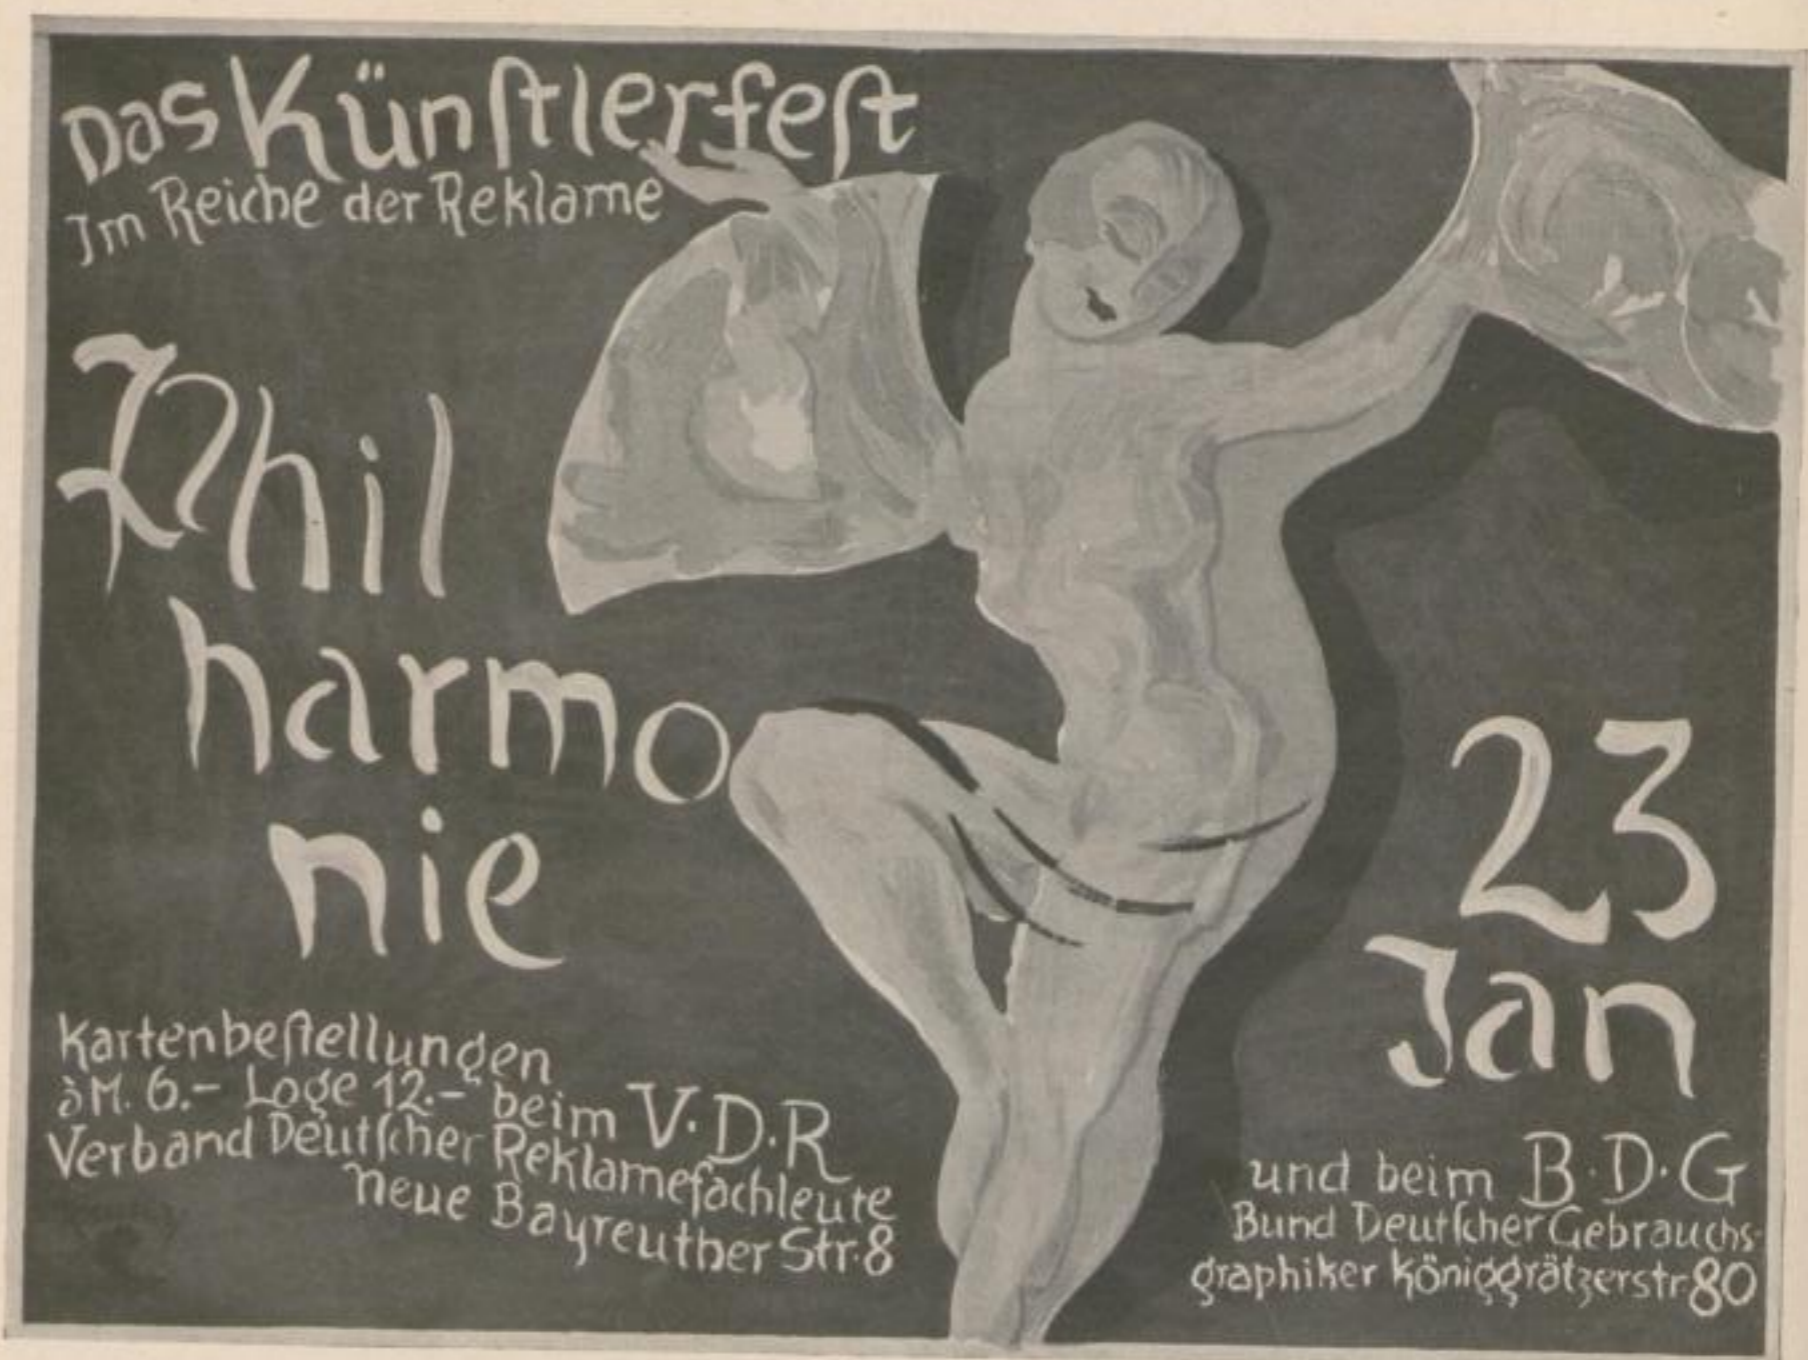 Das Künſtlerfeſt
Im Reiche der Reklame
Phil
harmo
nie
23
Jan
Kartenbeſtellungen
à M. 6.- Loge 12.- beim V.D.R
Verband Deutſcher Reklamefachleute
Neue Bayreuther Str. 8
und beim B.D.G
Bund Deutſcher Gebrauchs-
graphiker Königgrätzerstr 80